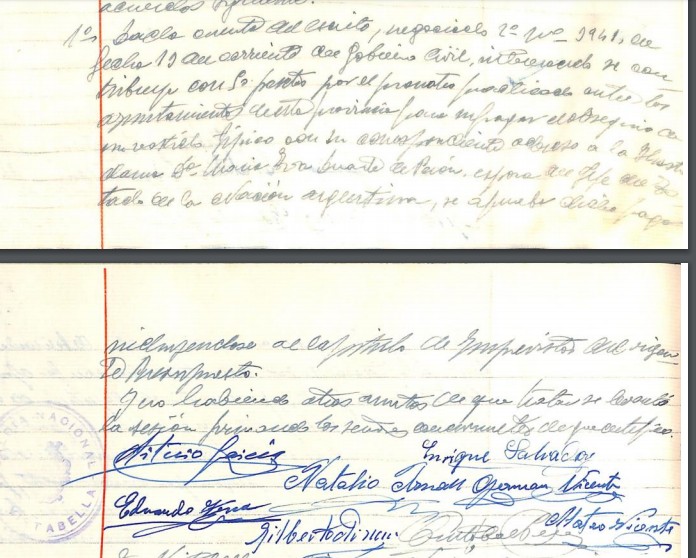 acuerdos siguientes.
1º Dada cuenta del escrito, negociado 2º Nº 3941, de
fecha 19 del corriente del Gobierno Civil, interesando se con
tribuya con 50 pesetas por el prorrateo practicado entre los
ayuntamientos de esta provincia para sufragar el obsequio de
un vestido típico con su correspondiente aderezo a la Ilustre
dama Dª Maria Eva Duarte de Perón, esposa del Jefe del Es
tado de la Nación argentina, se aprueba dicho pago
al capítulo de Imprevistos del vigen
te Presupuesto.
Y no habiendo otros asuntos de que tratar se levantó
la sesión firmando los señores concurrentes de que certifico.
García Enrique Salvador
Natalio Vicente
Eduardo Mateo Vicente
Gilberto
NACIONAL
TABELLA